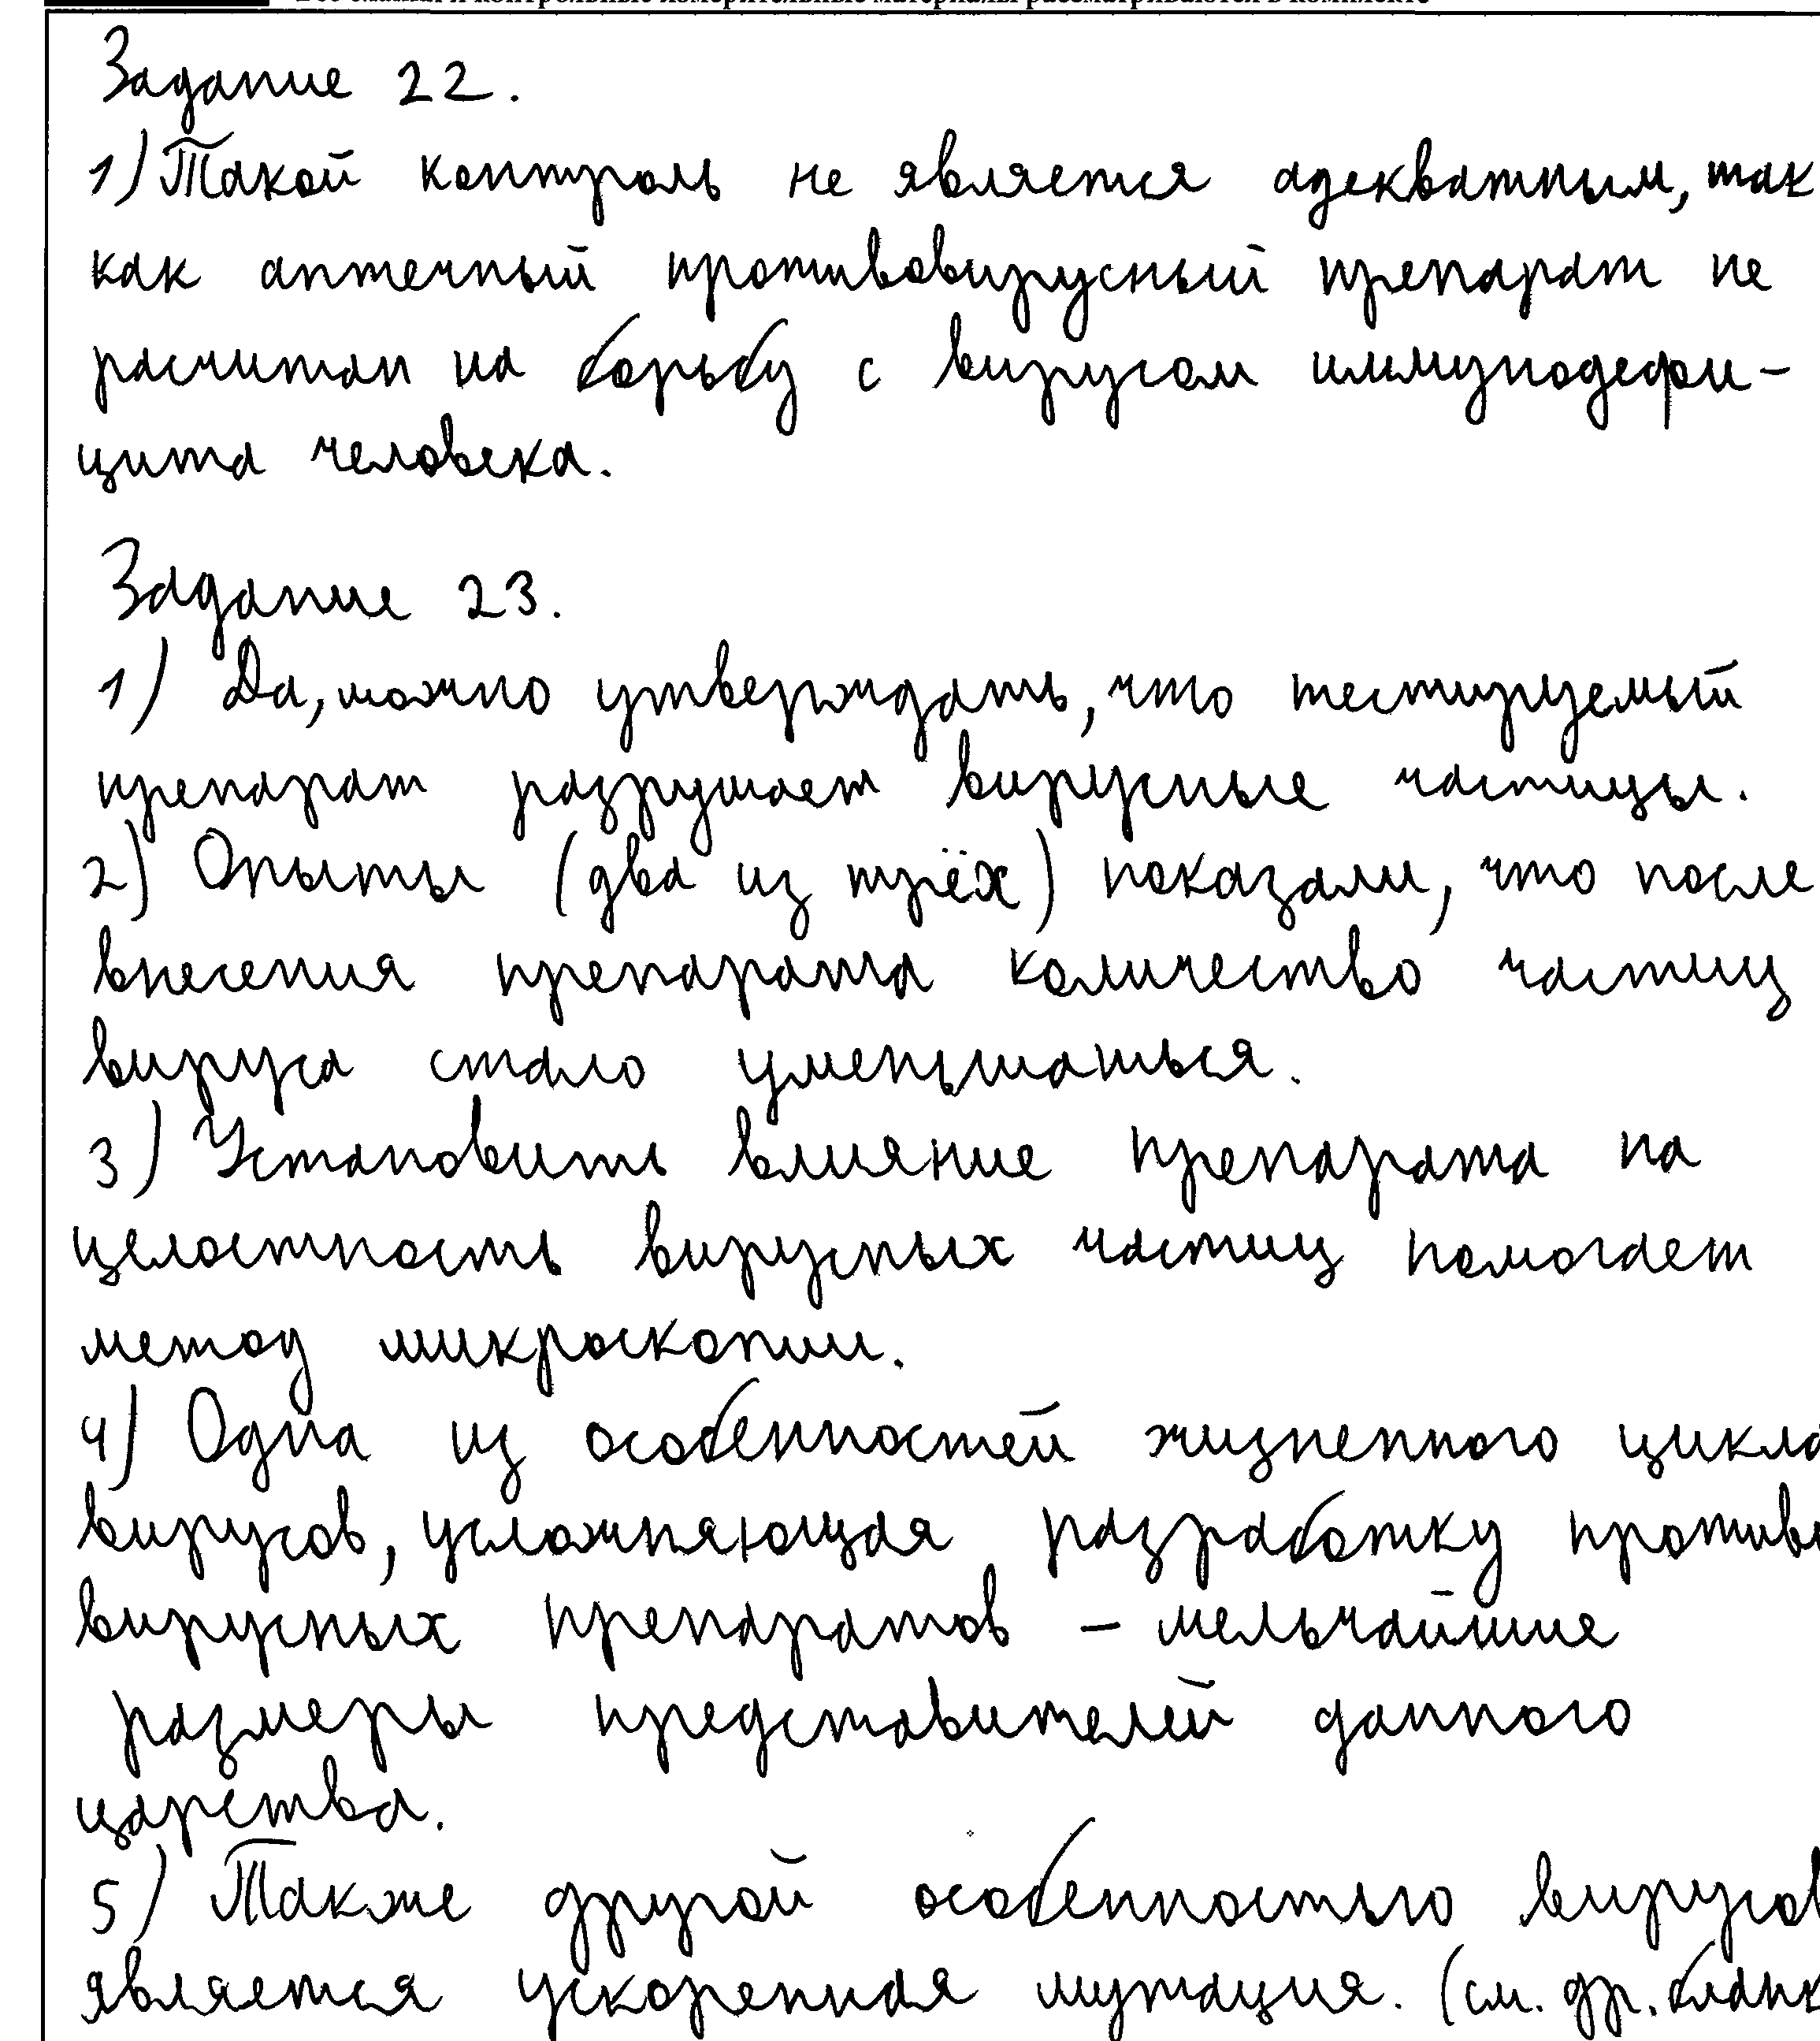 Задание 22.
1) Такой контроль не является адекватным, так
как аптечный противовирусный препарат не
расчитан на борьбу с вирусом иммунодефи-
цита человека.
Задание 23.
1) Да, можно утверждать, что тестируемый
препарат разрушает вирусные частицы.
2) Опыты (два из трёх) показали, что после
внесения препарата количество частиц
вируса стало уменьшаться.
3) Установить влияние препарата на
целостность вирусных частиц помогает
метод микроскопии.
4) Одна из особенностей жизненного цикла
вирусов, усложняющая разработку противо
вирусных препаратов - мельчайшие
размеры представителей данного
царства.
5) Также другой особенностью вирусов
является ускоренная мутация. (см. др. бланк